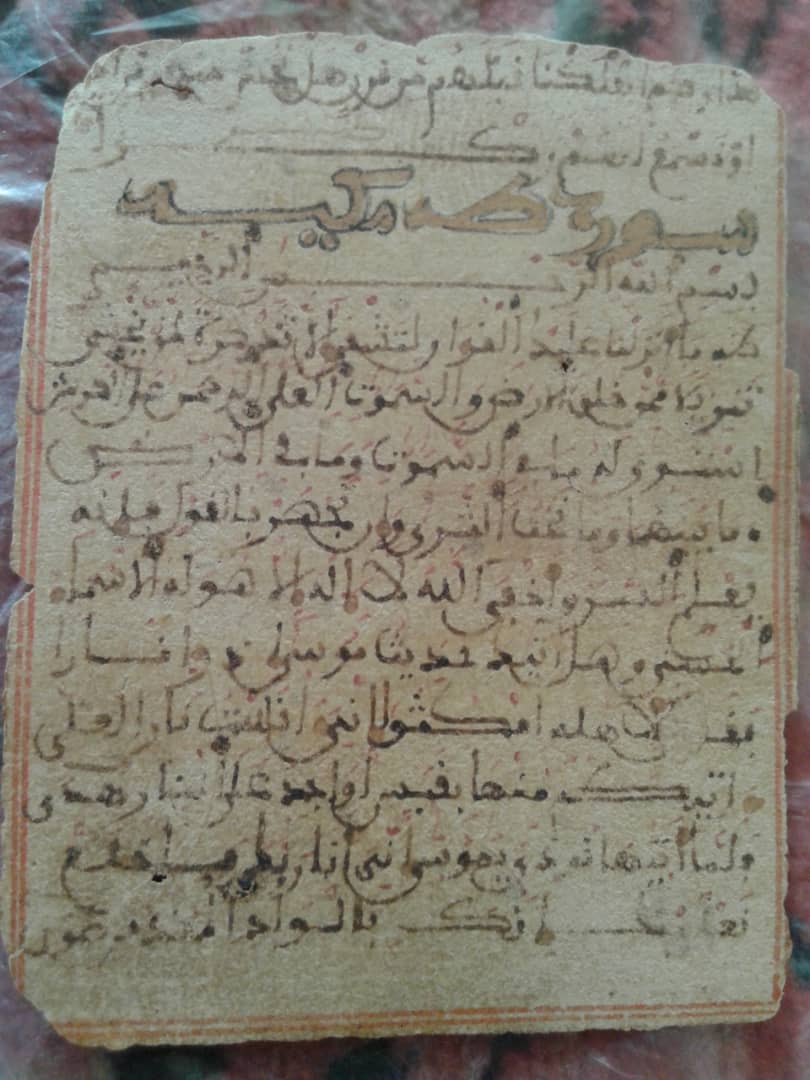 لدا وكم اهلكنا قبلهم من قرن هل تحس منهم من احد
او تسمع لهم ركزا
سورة طه مكية
بسم الله الرحمن الرحيم
طه ما انزلنا عليك القران لتشقى الا تذكرة لمن يخشى
تنزيلا ممن خلق الارض والسموت العلى الرحمن على العرش
استوى له ما في السموت وما في الارض
وما بينهما وما تحت الثرى وان تجهر بالقول فانه
يعلم السر واخفى الله لا اله الا هو له الاسماء
الحسنى وهل اتيك حديث موسى اذ را نارا
فقال لاهله امكثوا اني انست نارا لعلي
اتيكم منها بقبس او اجد على النار هدى
فلما اتيها نودي يموسى اني انا ربك فاخلع
نعليك انك بالواد المقدس طوى